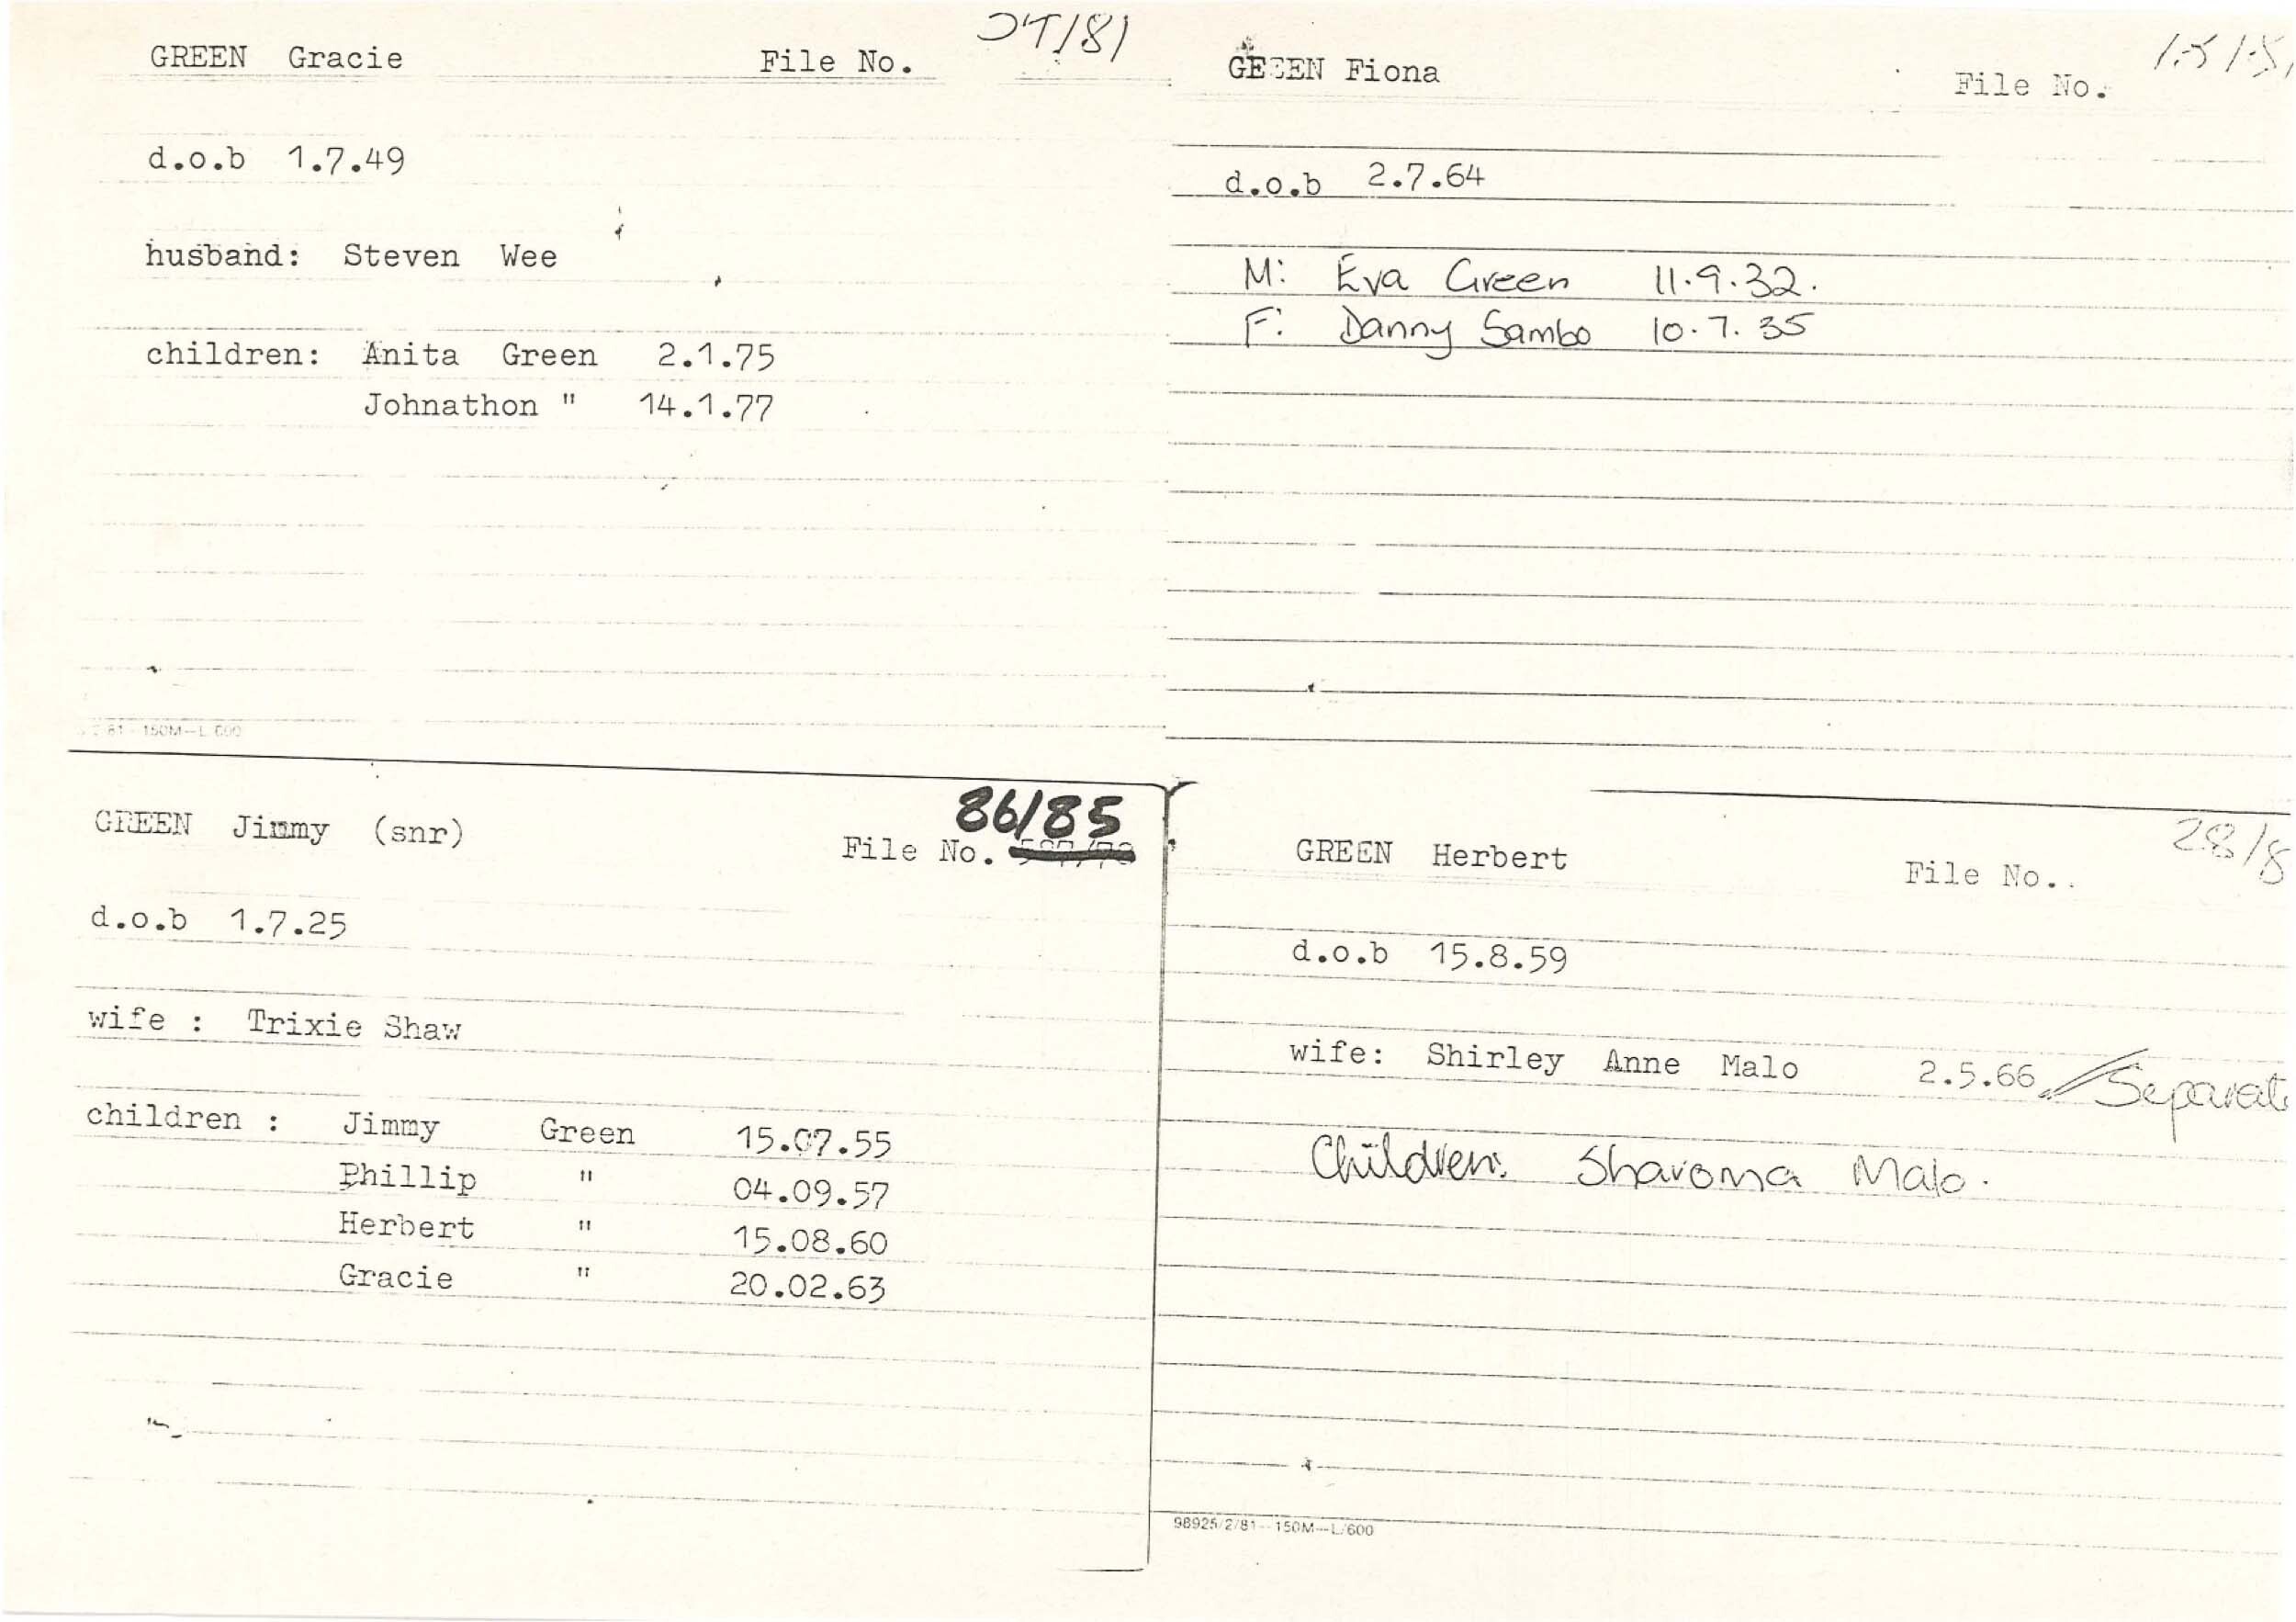 GREEN Gracie File No. /81
d.o.b 1.7.49
husband: Steven Wee
children: Anita Green 2.1.75
Johnathon " 14.1.77
150M-L/600
GREEN Fiona File No.
d.o.b 2.7.64
M: Eva Green 11.9.32.
F: Danny Sambo 10.7.35
GREEN Jimmy (snr) File No. 86/85
d.o.b 1.7.25
wife : Trixie Shaw
children : Jimmy Green 15.07.55
Phillip " 04.09.57
Herbert " 15.08.60
Gracie " 20.02.63
GREEN Herbert File No. 28/8
d.o.b 15.8.59
wife: Shirley Anne Malo 2.5.66 Separat
Children: Sharona Malo.
98925/2/81-150M-L/600